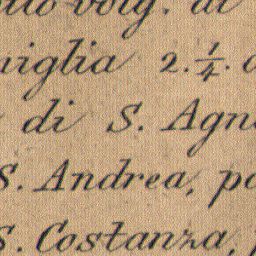 volg. di
niglia 2. 1/4.
di S. Agn
S. Andrea, po
S. Costanza,